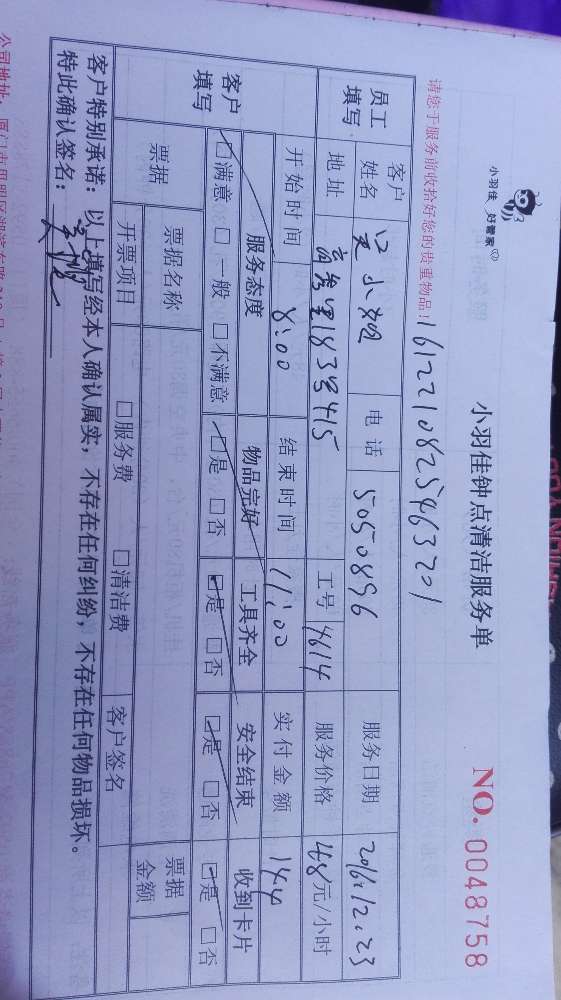 小羽佳 好管家
小羽佳钟点清洁服务单
NO. 0048758
请您于服务前收拾好您的贵重物品!
1612210825463201
员工填写
客户姓名 小姐 电话 5050896 服务日期 2016.12.23
地址 18号415 工号 4614 服务价格 48元/小时
开始时间 8:00 结束时间 11:00 实付金额 144
客户填写
服务态度 物品完好 工具齐全 安全结束 收到卡片
☑满意 □一般 □不满意 ☑是 □否 ☑是 □否 ☑是 □否 ☑是 □否
票据 票据名称 票据金额
开票项目 □服务费 □清洁费 客户签名
客户特别承诺：以上填写经本人确认属实，不存在任何纠纷，不存在任何物品损坏。
特此确认签名：
公司地址：厦门市思明区